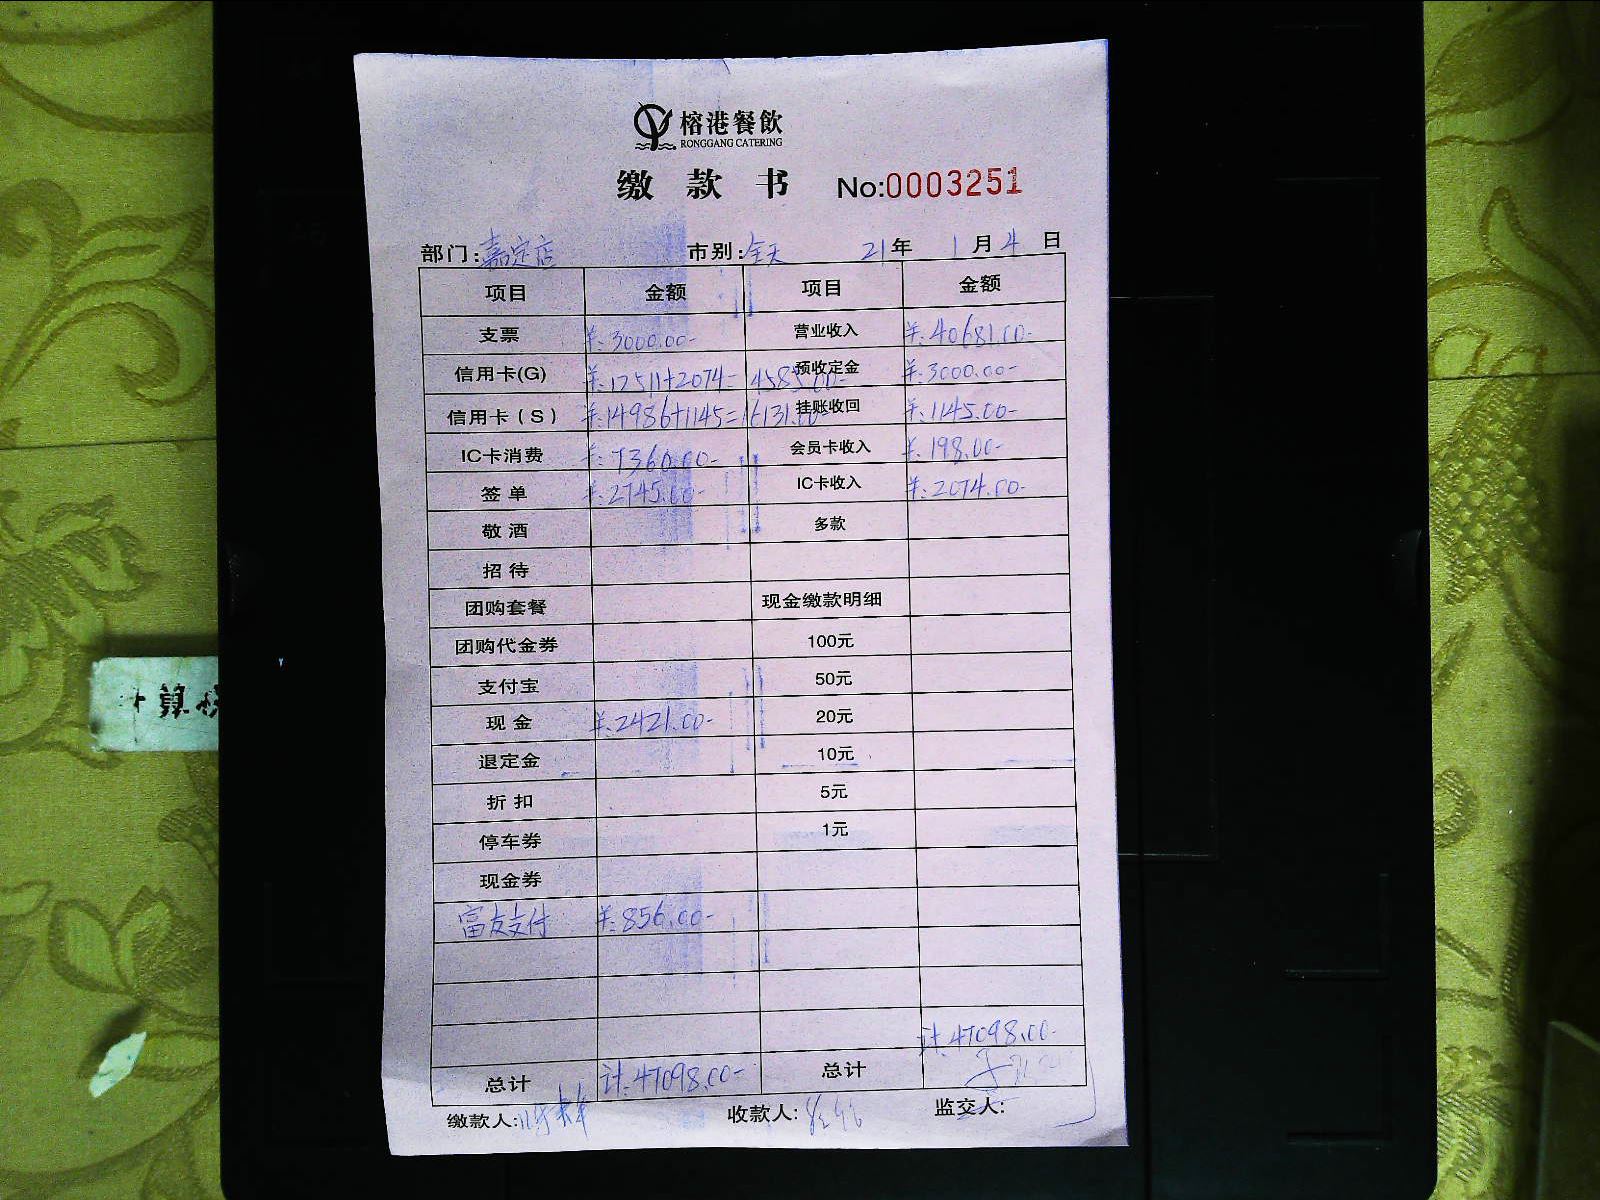 榕港餐飲
RONGGANG CATERING
缴款书 No:0003251
部门:嘉定店 市别:全天 21年 1月4日
项目 金额 项目 金额
支票 ¥:3000.00- 营业收入 ¥:40681.00-
信用卡(G) ¥:12511+2074=14585.00- 预收定金 ¥:3000.00-
信用卡(S) ¥:14986+1145=16131.00- 挂账收回 ¥:1145.00-
IC卡消费 ¥:7360.00- 会员卡收入 ¥:198.00-
签单 ¥:2745.00- IC卡收入 ¥:2074.00-
敬酒 多款
招待
团购套餐 现金缴款明细
团购代金券 100元
支付宝 50元
现金 ¥:2421.00- 20元
退定金 10元
折扣 5元
停车券 1元
现金券
富友支付 ¥:856.00-
计:47098.00-
总计 计:47098.00- 总计
缴款人: 收款人: 监交人:
计算